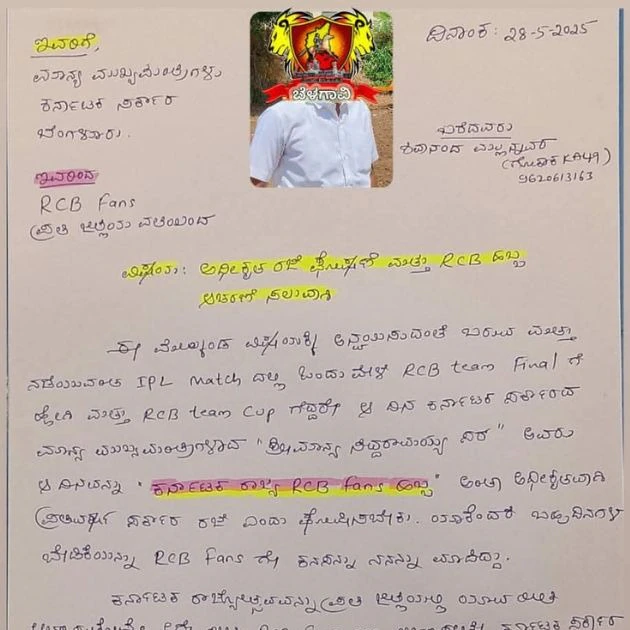 ಬೆಳಗಾವಿ
ದಿನಾಂಕ: 28-5-2025
ಇವರಿಗೆ,
ಮಾನ್ಯ ಮುಖ್ಯಮಂತ್ರಿಗಳು
ಕರ್ನಾಟಕ ಸರ್ಕಾರ
ಬೆಂಗಳೂರು.
ಬರೆದವರು
ಶಿವಾನಂದ ಮಲ್ಲಣ್ಣವರ
(ಗೋಕಾಕ KA49)
9620613163
ಇವರಿಂದ
RCB Fans
ಪ್ರತಿ ಜಿಲ್ಲೆಯ ವತಿಯಿಂದ
ವಿಷಯ: ಅಧೀಕೃತ ರಜೆ ಘೋಷಣೆ ಮತ್ತು RCB ಹಬ್ಬ
ಆಚರಣೆ ಸಲುವಾಗಿ
ಈ ಮೇಲ್ಕಂಡ ವಿಷಯಕ್ಕೆ ಅನ್ವಯಿಸುವಂತೆ ಬರುವ ಮತ್ತು
ನಡೆಯುವಂತ IPL Match ದಲ್ಲಿ ಒಂದು ವೇಳೆ RCB team Final ಗೆ
ಹೋಗಿ ಮತ್ತು RCB team Cup ಗೆದ್ದರೇ ಆ ದಿನ ಕರ್ನಾಟಕ ಸರ್ಕಾರದ
ಮಾನ್ಯ ಮುಖ್ಯಮಂತ್ರಿಗಳಾದ "ಶ್ರೀಮಾನ್ಯ ಸಿದ್ದರಾಮಯ್ಯ ಸರ್" ಅವರು
ಆ ದಿನವನ್ನು "ಕರ್ನಾಟಕ ರಾಜ್ಯ RCB fans ಹಬ್ಬ" ಅಂತಾ ಅಧೀಕೃತವಾಗಿ
ಪ್ರತಿವರ್ಷ ಸರ್ಕಾರಿ ರಜೆ ಎಂದು ಘೋಷಿಸಬೇಕು. ಯಾಕೆಂದರೆ ಬಹುದಿನಗಳ
ಬೇಡಿಕೆಯನ್ನು RCB Fans ಗೇ ಕನಸನ್ನು ನನಸನ್ನು ಮಾಡಿದ್ದು.
ಕರ್ನಾಟಕ ರಾಜ್ಯೋತ್ಸವವನ್ನು ಪ್ರತಿ ಜಿಲ್ಲೆಯಲ್ಲಿ ಯಾವ ರೀತಿ
ಕರ್ನಾಟಕ ಸರ್ಕಾರ